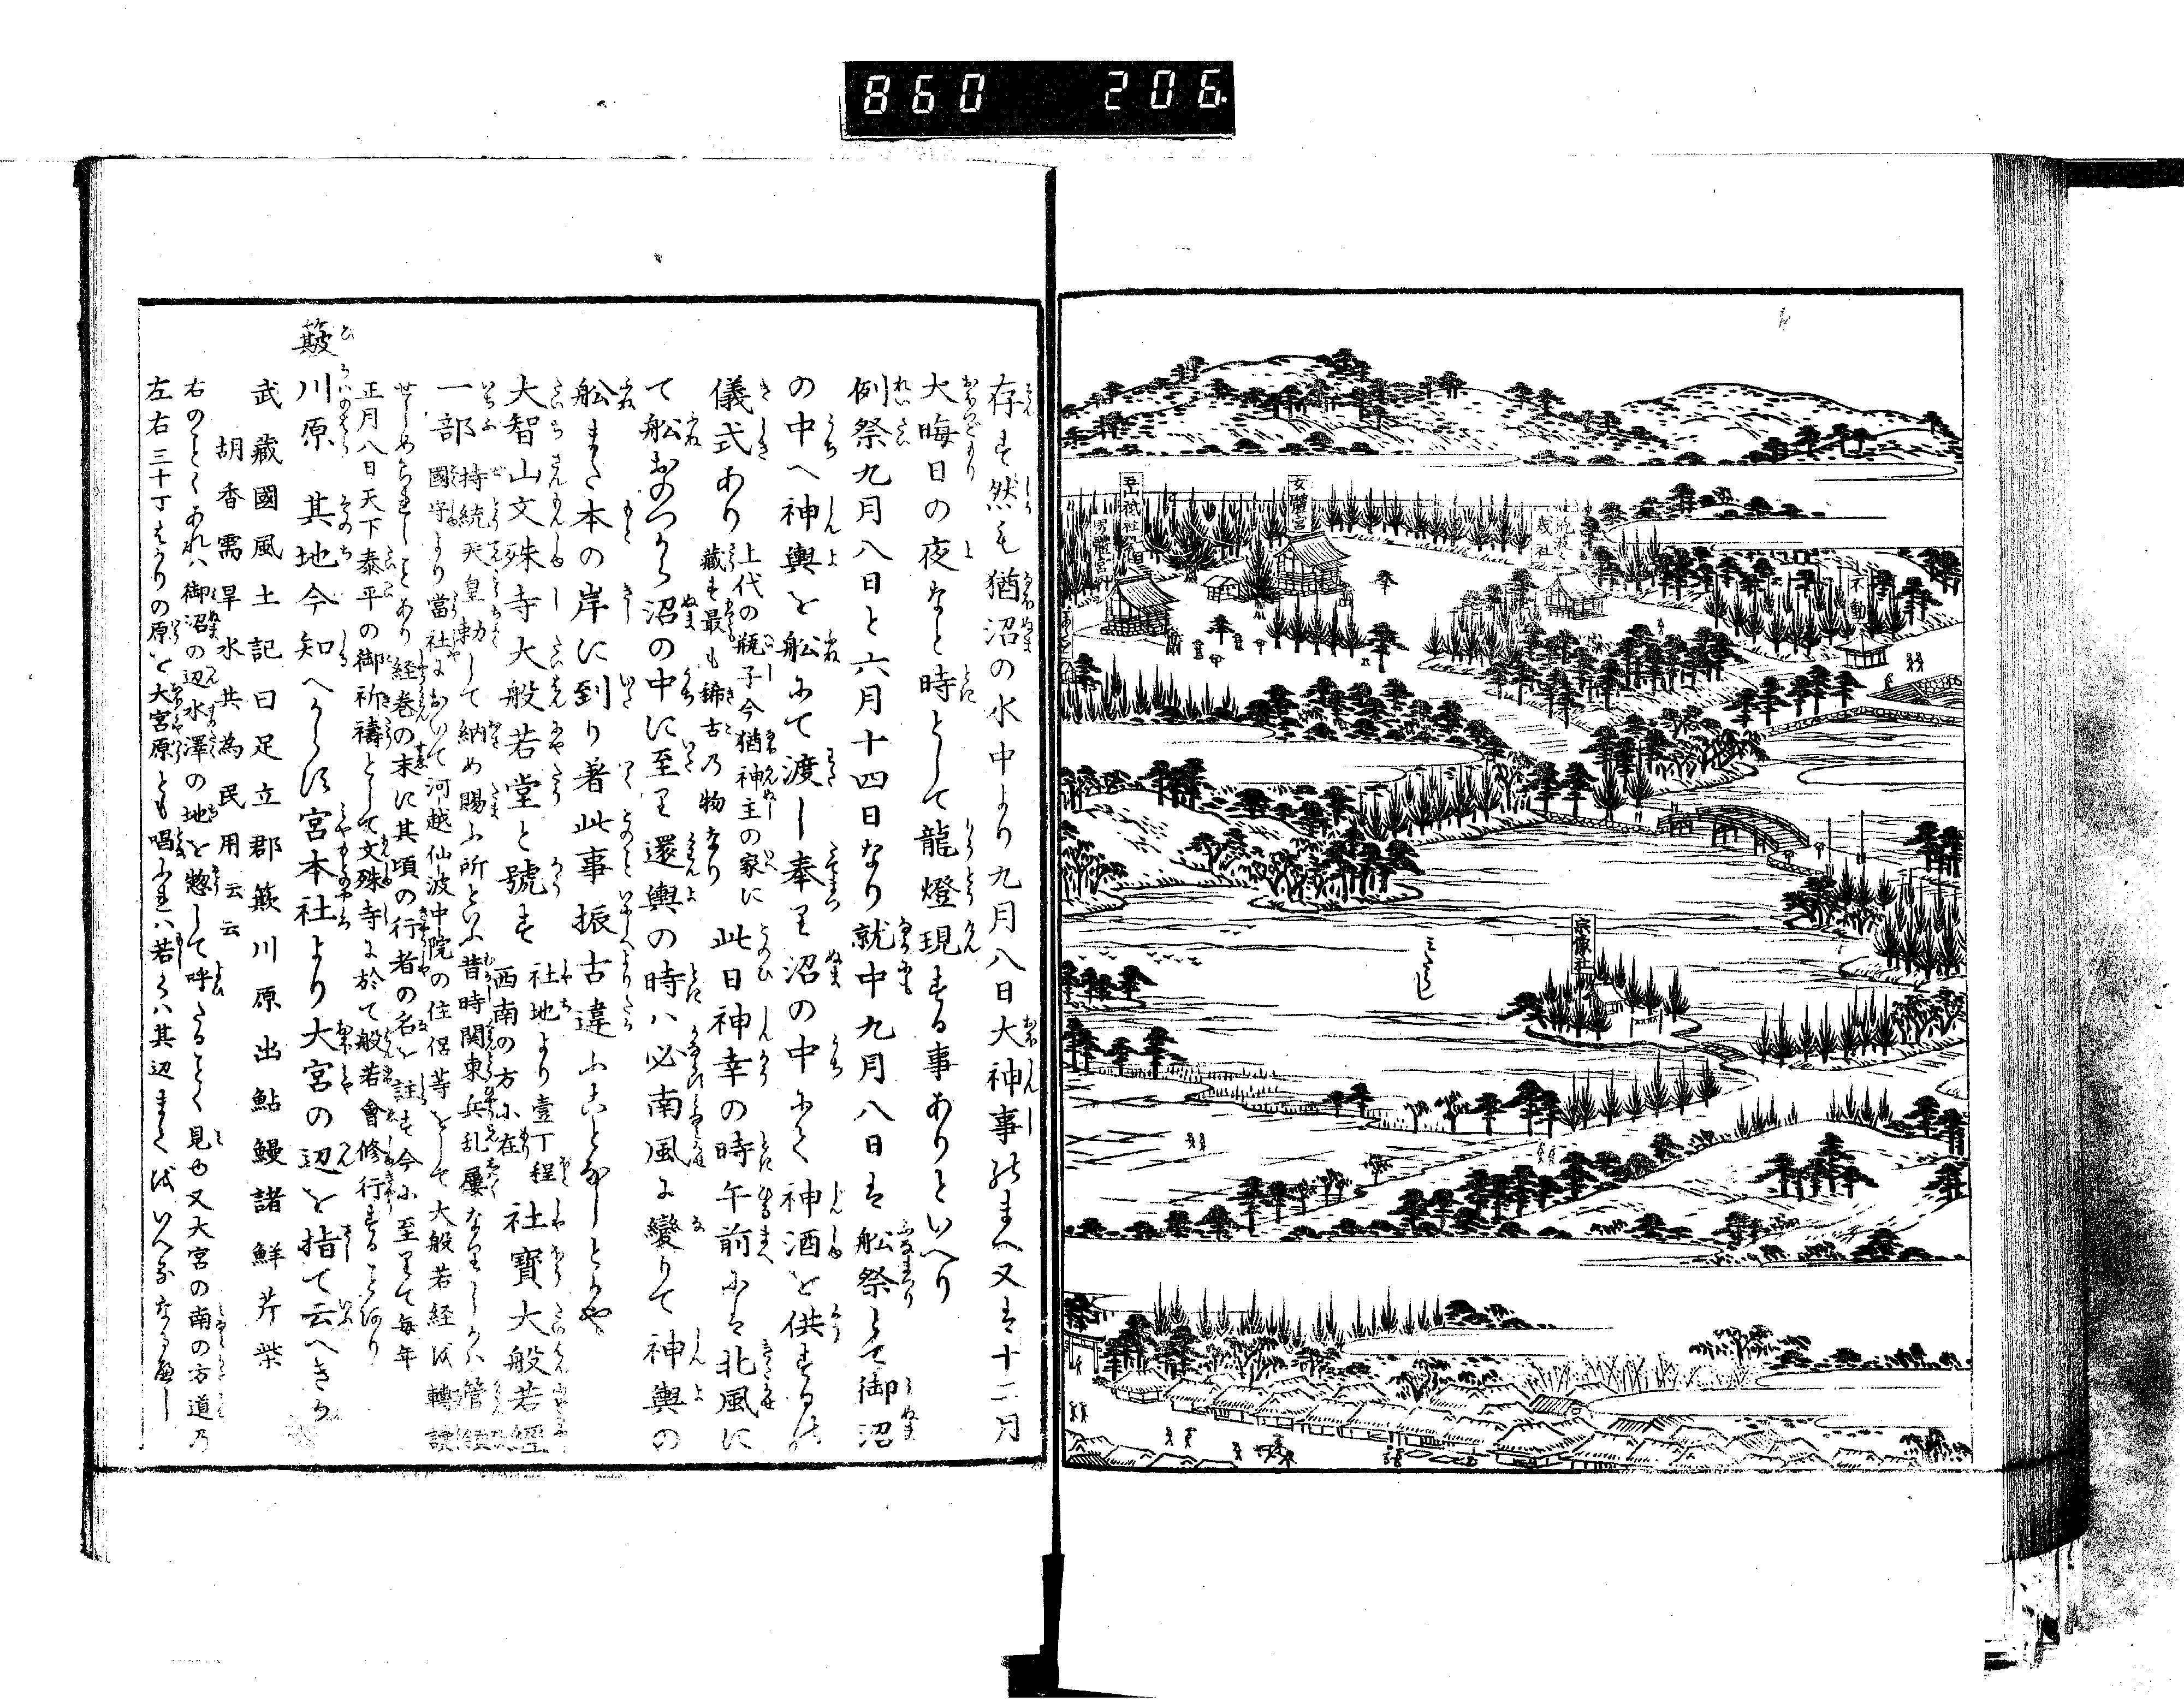 860 206
女體宮
宗像社
みたらし
不動
存す然も猶沼の水中より九月八日大神事のまへ又は十二月
大晦日の夜など時として龍燈現する事ありといへり
例祭九月八日と六月十四日なり就中九月八日は舩祭とて御沼
の中へ神輿を舩にて渡し奉り沼の中にて神酒を供するの
儀式あり
上代の瓶子今猶神主の家に
藏す最も錺古の物なり
此日神幸の時午前には北風に
て舩おのつから沼の中に至り還輿の時ハ必南風に變りて神輿の
舩また本の岸に到り着此事振古違ふことなしとかや
大智山文殊寺大般若堂と號す
社地より壹丁程
西南の方に在
社寳大般若經
一部
持統天皇勅して納め賜ふ所といふ昔時関東兵乱屢なりしかハ管領
國守より當社において河越仙波中院の住侶等をして大般若経を轉讀
せしめられしことあり経巻の末に其頃の行者の名を註す今に至りて毎年
正月八日天下泰平の御祈禱として文殊寺に於て般若會修行することあり
簸川原
其地今知へからす宮本社より大宮の辺を指て云へきか
武藏國風土記曰足立郡簸川原出鮎鰻諸鮮芹柴
胡香需旱水共為民用云云
右のことくあれハ御沼の辺水澤の地を惣して呼たることく見ゆ又大宮の南の方道の
左右三十丁はかりの原を大宮原とも唱ふれハ若くハ其辺まてをいへるなるへし